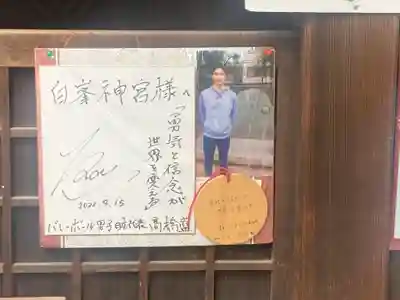 白峯神宮様へ
「勇気と信念が
世界を変える
Ran
2021.9.15
バレーボール男子日本代表 高橋藍